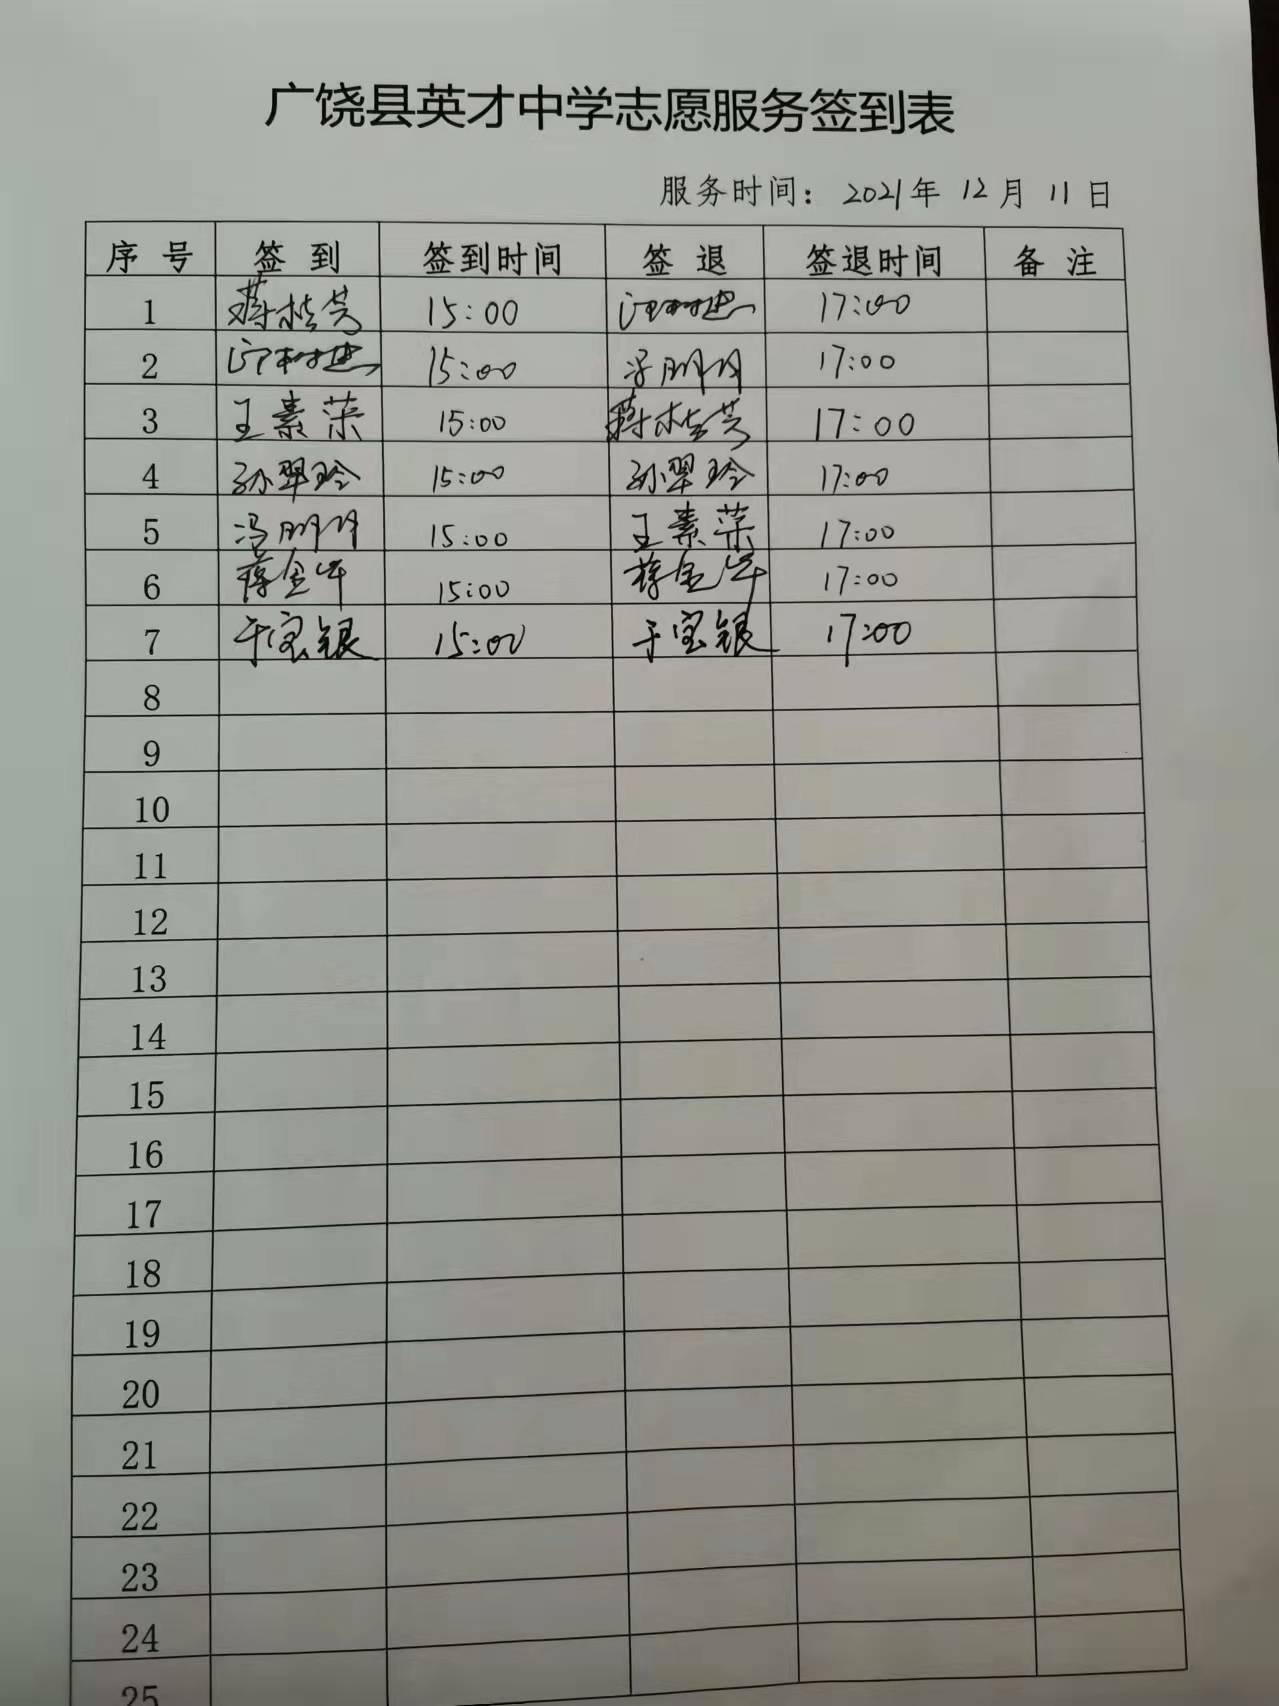 广饶县英才中学志愿服务签到表
服务时间：2021年 12月 11日
序号 签到 签到时间 签退 签退时间 备注
1 蒋桂芳 15:00 17:00
2 15:00 冯朋朋 17:00
3 王素荣 15:00 蒋桂芳 17:00
4 孙翠玲 15:00 孙翠玲 17:00
5 冯朋朋 15:00 王素荣 17:00
6 蒋金华 15:00 蒋金华 17:00
7 于宝银 15:00 于宝银 17:00
8
9
10
11
12
13
14
15
16
17
18
19
20
21
22
23
24
25